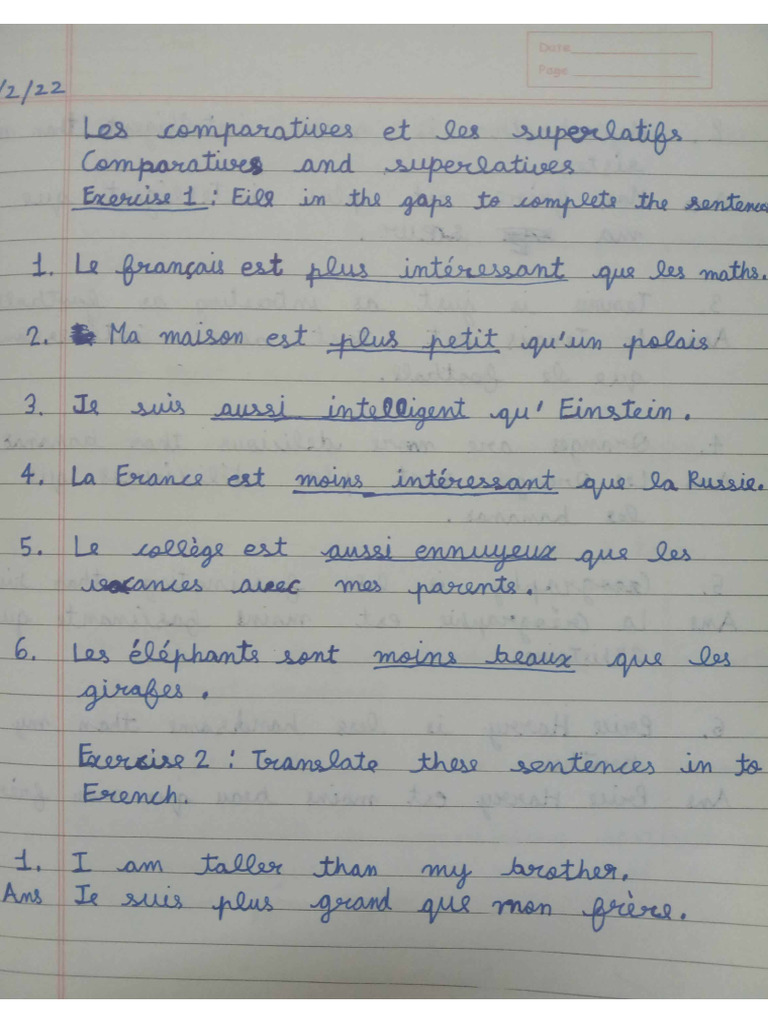 Date
Page
/2/22
Les comparatives et les superlatifs
Comparatives and superlatives
Exercise 1 : Fill in the gaps to complete the sentences
1. Le français est plus intéressant que les maths.
2. Ma maison est plus petit qu'un palais
3. Je suis aussi intelligent qu' Einstein.
4. La France est moins intéressant que la Russie.
5. Le collège est aussi ennuyeux que les
vacances avec mes parents.
6. Les éléphants sont moins beaux que les
girafes.
Exercise 2 : Translate these sentences in to
French.
1. I am taller than my brother.
Ans Je suis plus grand que mon frère.